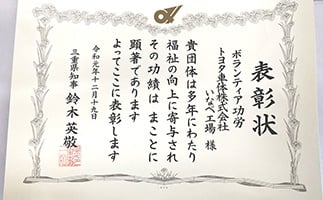 表彰状
ボランティア功労
トヨタ車体株式会社
いなべ工場 様
貴団体は多年にわたり
福祉の向上に寄与され
その功績は まことに
顕著であります
よってここに表彰します
令和元年十二月十九日
三重県知事 鈴木英敬